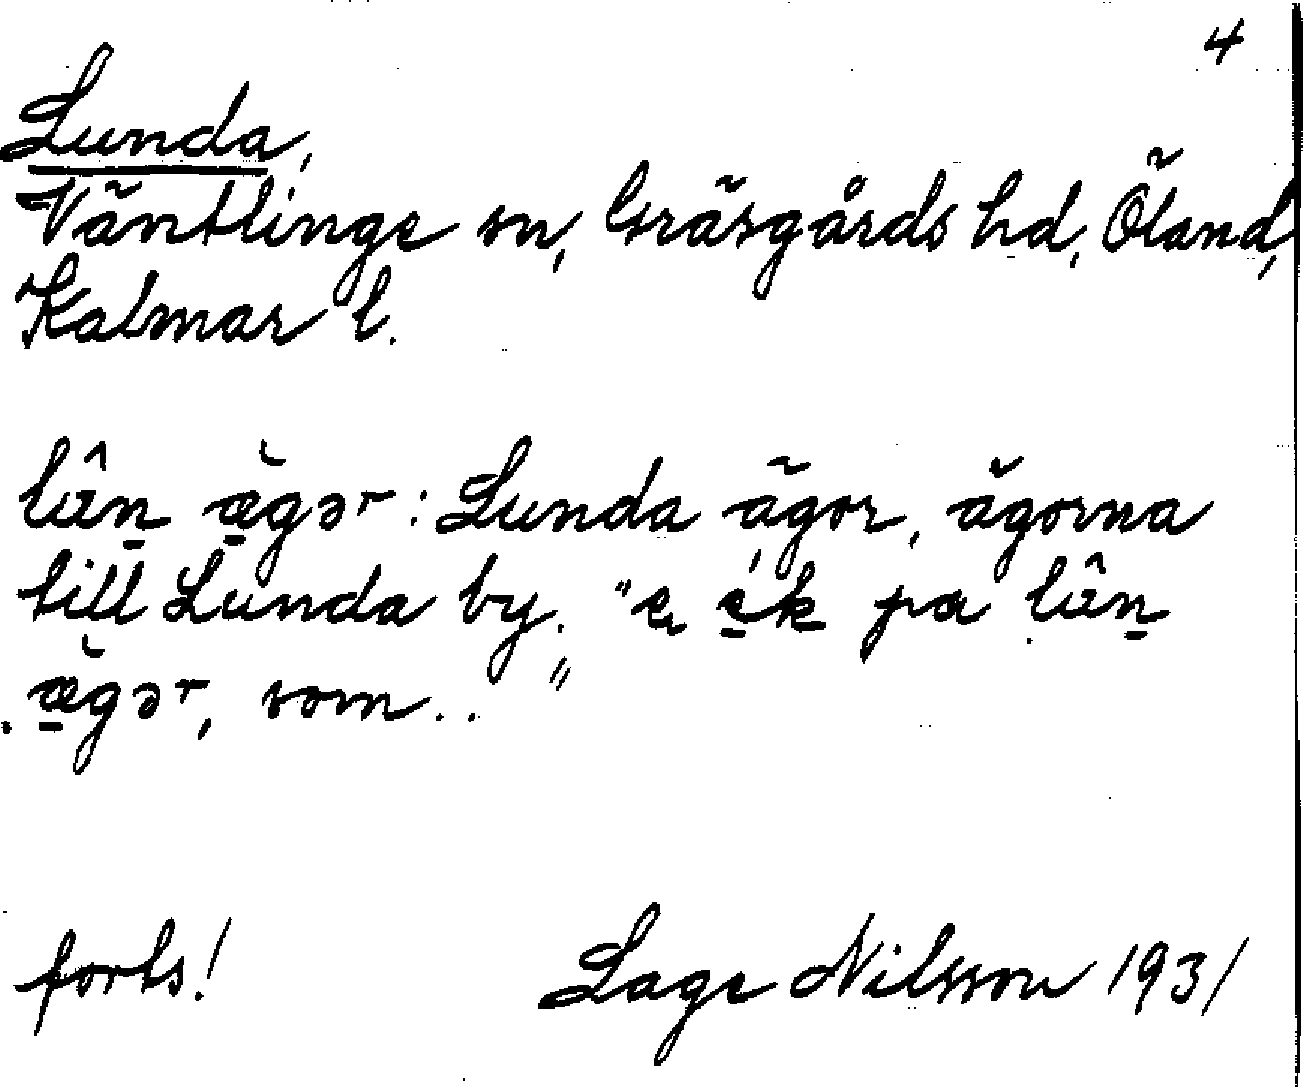 4
Lunda,
Väntlinge sn, Gräsgårds hd, Öland,
Kalmar l.
: Lunda ägor, ägorna
till Lunda by. "
som.."
forts! Lage Nilsson 1931